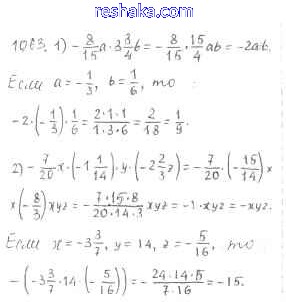 reshaka.com
1083. 1) -8/15 a · 3 3/4 b = -8/15 · 15/4 ab = -2ab.
Если a = -1/3, b = 1/6, то
-2 · (-1/3) · 1/6 = 2·1·1/1·3·6 = 2/18 = 1/9.
2) -7/20 x · (-1 1/14) · y · (-2 2/3 z) = -7/20 · (-15/14) ×
× (-8/3) xyz = -7·15·8/20·14·3 xyz = -1·xyz = -xyz.
Если x = -3 3/7, y = 14, z = -5/16, то
-(-3 3/7 · 14 · (-5/16)) = -24·14·5/7·16 = -15.